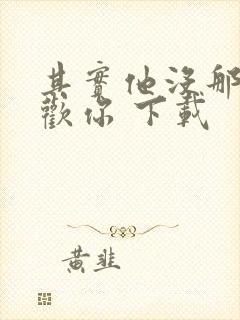 其實他沒那
歡你 下載
黃韭